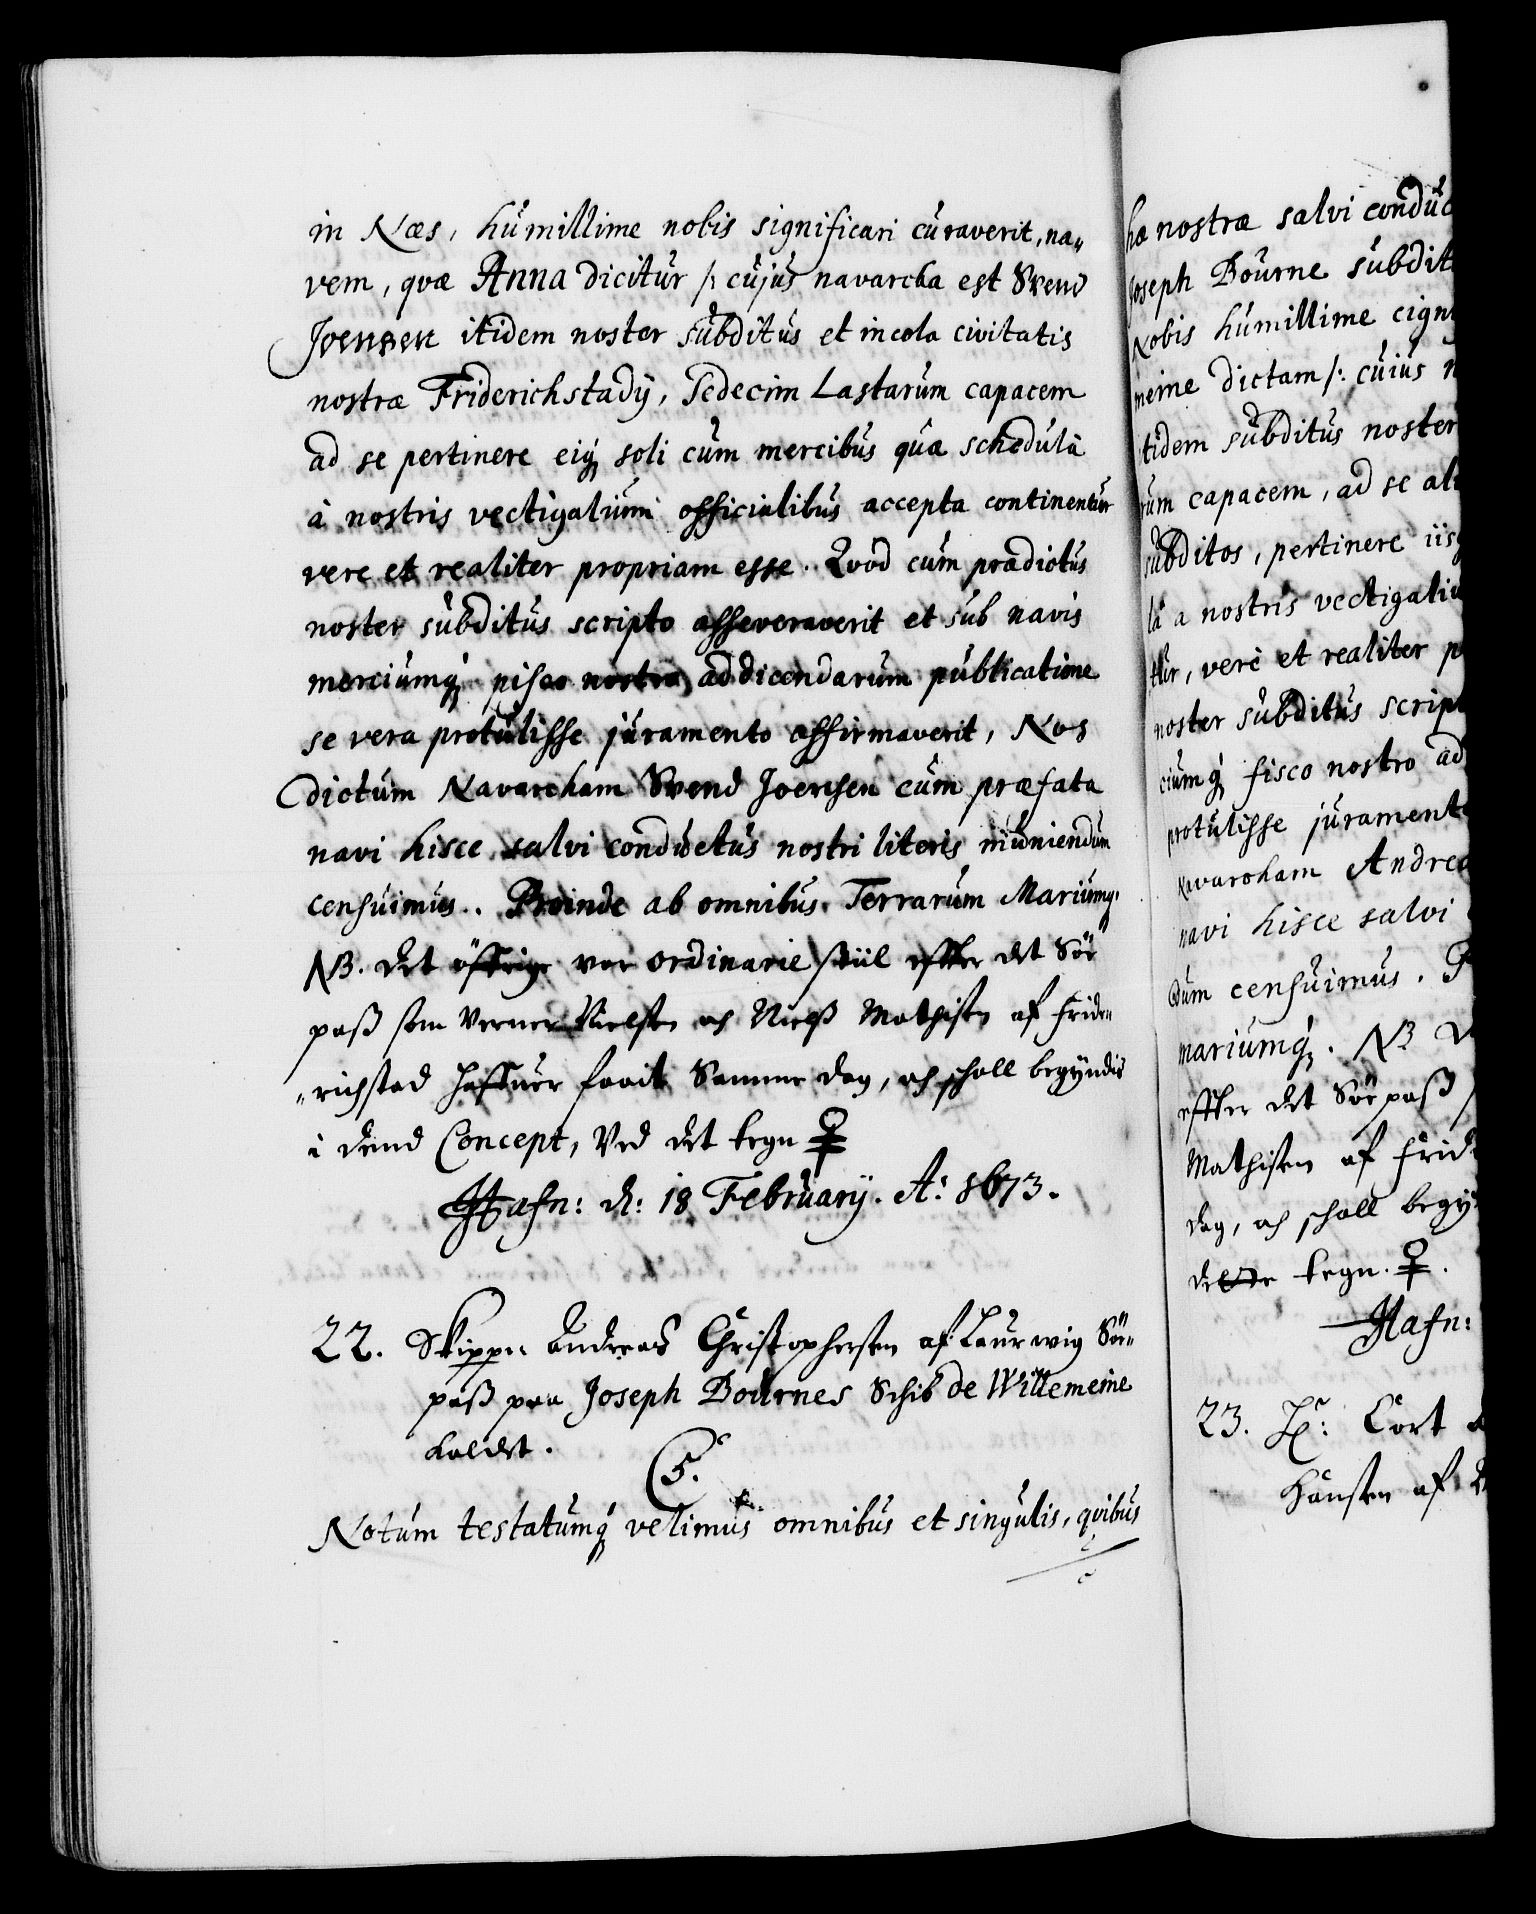 in Næs, humillime nobis significari curaverit, na„
vem, qvæ Anna dicitur /: cujus navarcha est Svend
Joensen itidem noster subditus et incola civitatis
nostræ Friderichstadÿ, Sedecim Lastarum capacem
ad se pertinere eiq́ soli cum mercibus quæ schedula
à nostris vectigalium officialibus accepta continentur
vere et realiter propriam esse. Qvod cum prædictus
noster subditus scripto asseveraverit et sub navis
merciumq́ nostro addicendarum publicatione
se vera protulisse juramento affirmaverit, Nos
dictum Navarcham Svend Joensen cum præfata
navi hisce salvi conductus nostri literis muniendum
censuimus. Proinde ab omnibus Terrarum Mariumq.
NB. det öffrige var ordinarie stiil effter det Söe
pass som Verner Nielsen och Nielss Mathisen af Fride„
„richstad haffuer faait Samme dag, och schall begyndis
i dend Concept, Ved det tegn ♀
Hafn: d: 18 Februarÿ. A: 1673.
22. Skipper Andreas Christophersen af Laurwig Söe„
pass paa Joseph Bournes Schib de Willemeine
kaldet.
C 5.
Notum testatumq́ velimus omnibus et singulis, qvibus
hæ nostræ salvi conduc
Joseph Bourne subdit
Nobis humillime cign
meine dictam /: cuius n
itidem subditus noster
rum capacem, ad se al
subditos, pertinere iisq
la a nostris vectigaliu
tur, verè et realiter p
noster subditus script
ciumq́ fisco nostro ad
protulisse jurament
Navarcham Andrea
navi hisce salvi
dum censuimus. P
mariumq́. NB D
effter det Söe pass
Mathisen af Frid
dag, och schall begy
dette tegn. ♀.
Hafn:
23. Cort
Hansen af